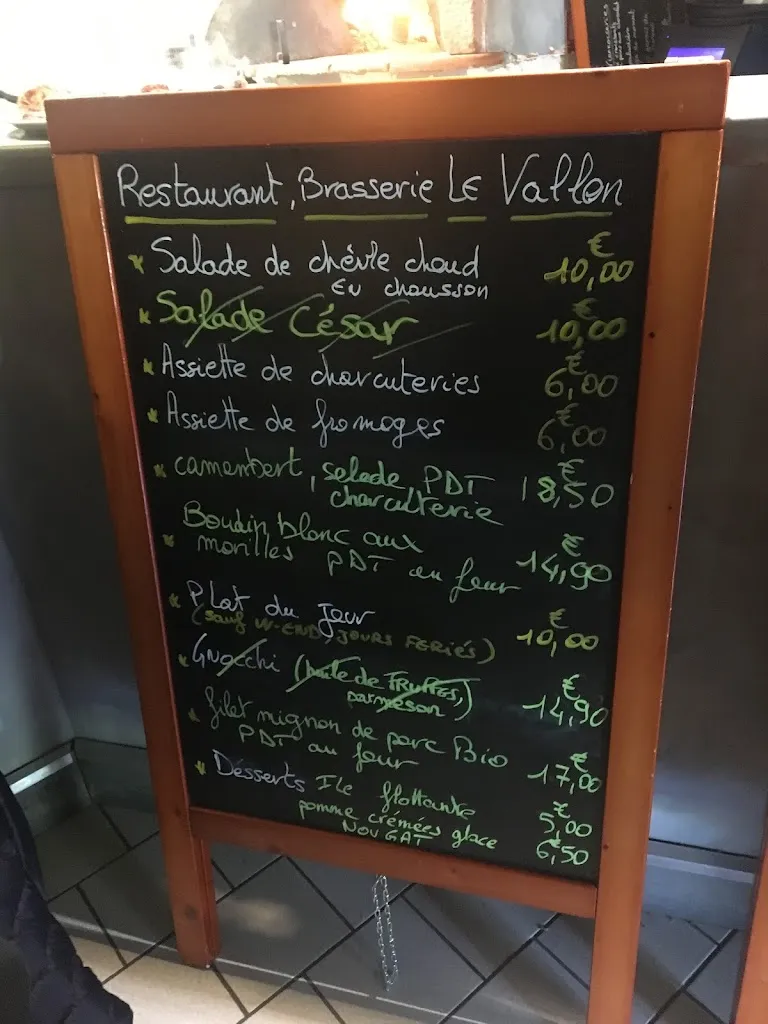 Restaurant, Brasserie Le Vallon
Salade de chèvre chaud € 10,00
en chausson
Salade César € 10,00
Assiette de charcuteries € 6,00
Assiette de fromages € 6,00
camembert, salade, PDT € 18,50
charcutterie
Boudin blanc aux
morilles PDT au four € 14,90
Plat du Jour € 10,00
(sauf W-END, JOURS FERIÉS)
Gnocchi (huile de TRUFFES, € 14,90
parmesan)
filet mignon de porc Bio
PDT au four € 17,00
Desserts Ile flottante € 5,00
pomme crémées glace € 6,50
NOUGAT